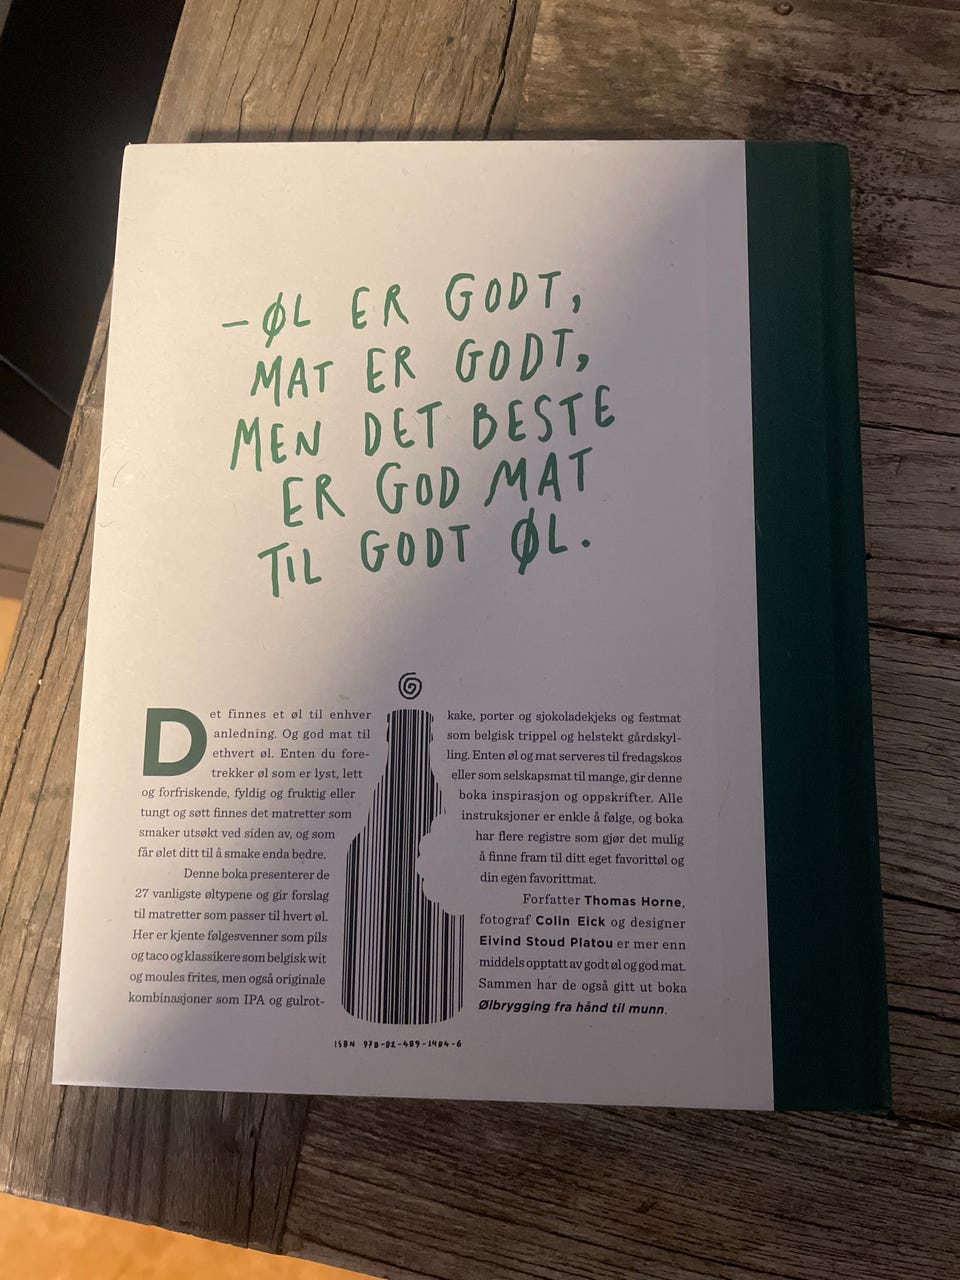 –ØL ER GODT,
MAT ER GODT,
MEN DET BESTE
ER GOD MAT
TIL GODT ØL.
Det finnes et øl til enhver
anledning. Og god mat til
ethvert øl. Enten du fore-
trekker øl som er lyst, lett
og forfriskende, fyldig og fruktig eller
tungt og søtt finnes det matretter som
smaker utsøkt ved siden av, og som
får ølet ditt til å smake enda bedre.
Denne boka presenterer de
27 vanligste øltypene og gir forslag
til matretter som passer til hvert øl.
Her er kjente følgesvenner som pils
og taco og klassikere som belgisk wit
og moules frites, men også originale
kombinasjoner som IPA og gulrot-
kake, porter og sjokoladekjeks og festmat
som belgisk trippel og helstekt gårdskyl-
ling. Enten øl og mat serveres til fredagskos
eller som selskapsmat til mange, gir denne
boka inspirasjon og oppskrifter. Alle
instruksjoner er enkle å følge, og boka
har flere registre som gjør det mulig
å finne fram til ditt eget favorittøl og
din egen favorittmat.
Forfatter Thomas Horne,
fotograf Colin Eick og designer
Eivind Stoud Platou er mer enn
middels opptatt av godt øl og god mat.
Sammen har de også gitt ut boka
Ølbrygging fra hånd til munn.
ISBN 978-82-489-1484-6